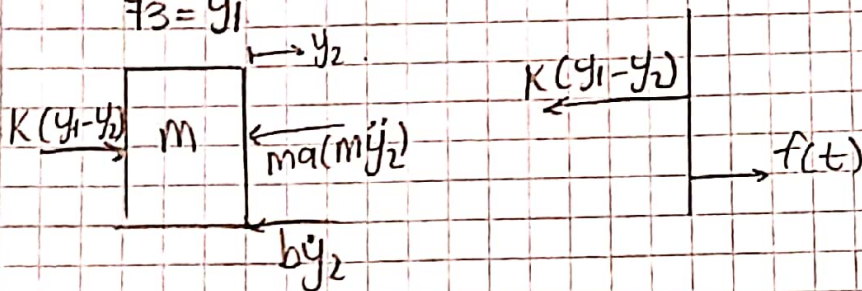 73 = y1
y2
K(y1-y2)
m
ma(mÿ2)
bẏ2
K(y1-y2)
f(t)